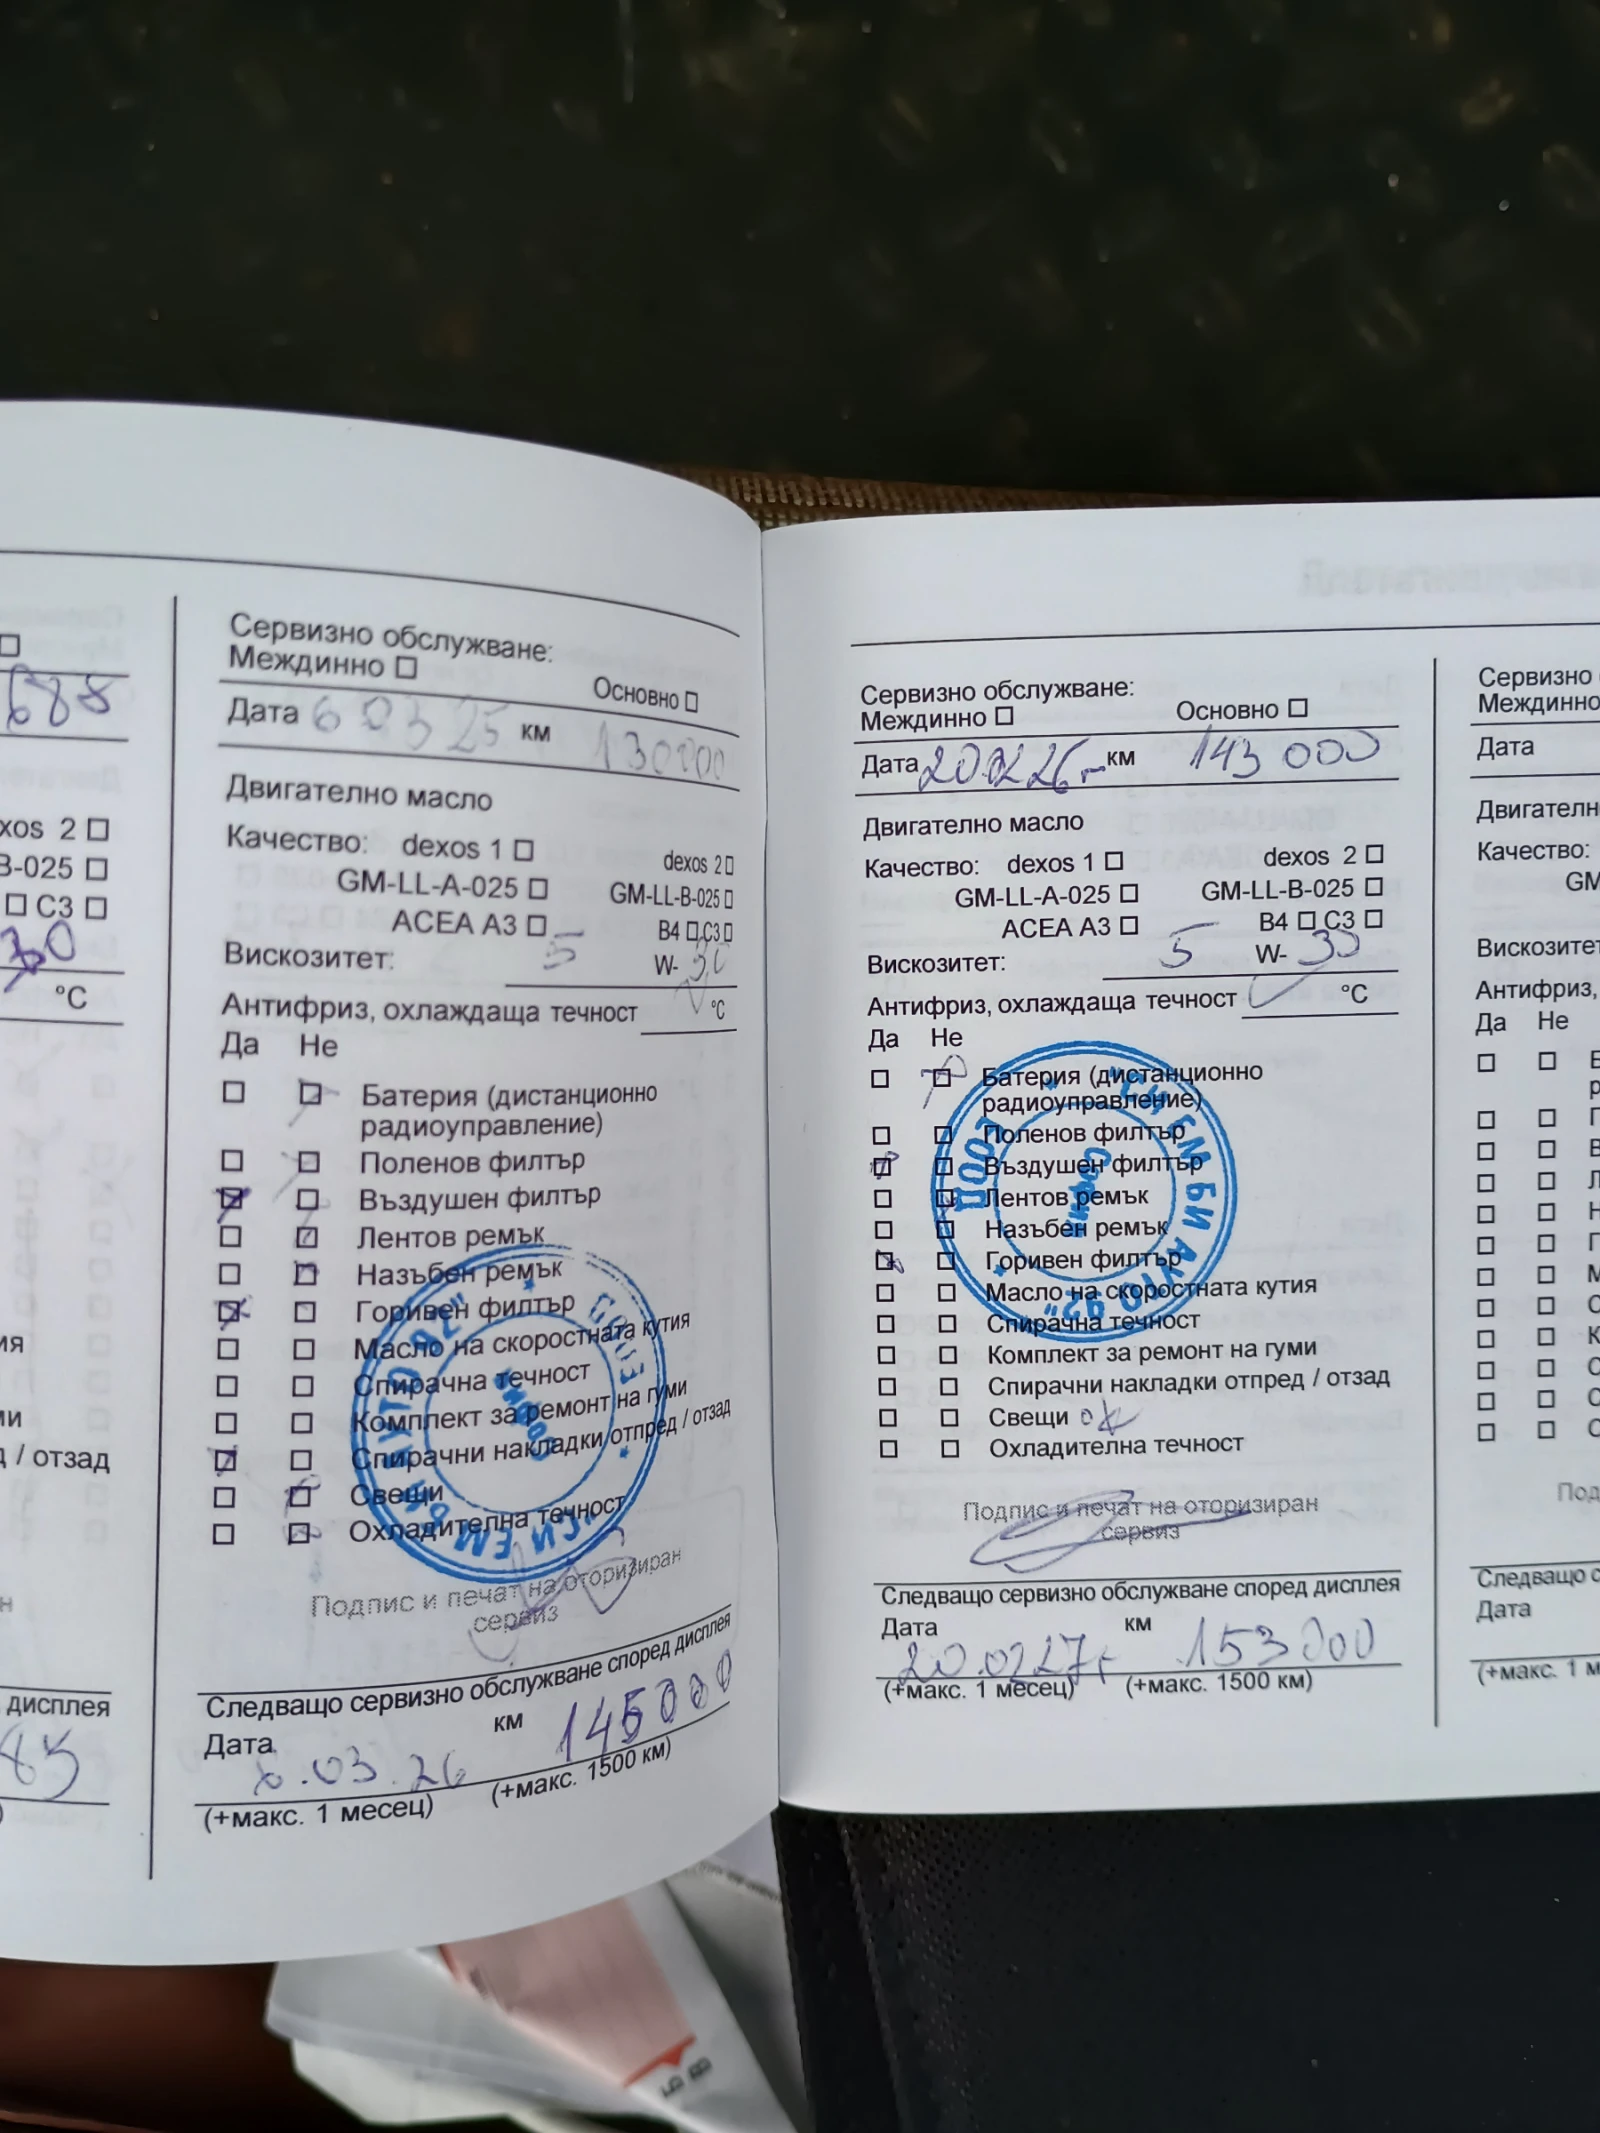 688
xos 2
B-025
C3
30
°C
ия
ми
д / отзад
н
дисплея
85
Сервизно обслужване:
Междинно
Основно
Дата 6 03 25 км 130000
Двигателно масло
Качество: dexos 1
dexos 2
GM-LL-A-025
GM-LL-B-025
ACEA A3
B4 C3
Вискозитет: 5 W- 30
Антифриз, охлаждаща течност °C
Да Не
Батерия (дистанционно
радиоуправление)
Поленов филтър
Въздушен филтър
Лентов ремък
Назъбен ремък
Горивен филтър
Масло на скоростната кутия
Спирачна течност
Комплект за ремонт на гуми
Спирачни накладки отпред / отзад
Свещи
Охладителна течност
"СИ ЕМ БИ АУТО 92" ЕООД
София
Подпис и печат на оторизиран
сервиз
Следващо сервизно обслужване според дисплея
Дата 6.03.26 км 145000
(+макс. 1 месец) (+макс. 1500 км)
Сервизно обслужване:
Междинно Основно
Дата 20.02.26г км 143 000
Двигателно масло
Качество: dexos 1 dexos 2
GM-LL-A-025 GM-LL-B-025
ACEA A3 B4 C3
Вискозитет: 5 W- 30
Антифриз, охлаждаща течност °C
Да Не
Батерия (дистанционно
радиоуправление)
Поленов филтър
Въздушен филтър
Лентов ремък
Назъбен ремък
Горивен филтър
Масло на скоростната кутия
Спирачна течност
Комплект за ремонт на гуми
Спирачни накладки отпред / отзад
Свещи ок
Охладителна течност
"СИ ЕМ БИ АУТО 92" ЕООД
София
Подпис и печат на оторизиран
сервиз
Следващо сервизно обслужване според дисплея
Дата 20.02 27г км 153 000
(+макс. 1 месец) (+макс. 1500 км)
Сервизно
Междинно
Дата
Двигателн
Качество:
GM
Вискозитет
Антифриз,
Да Не
Под
Следващо с
Дата
(+макс. 1 м